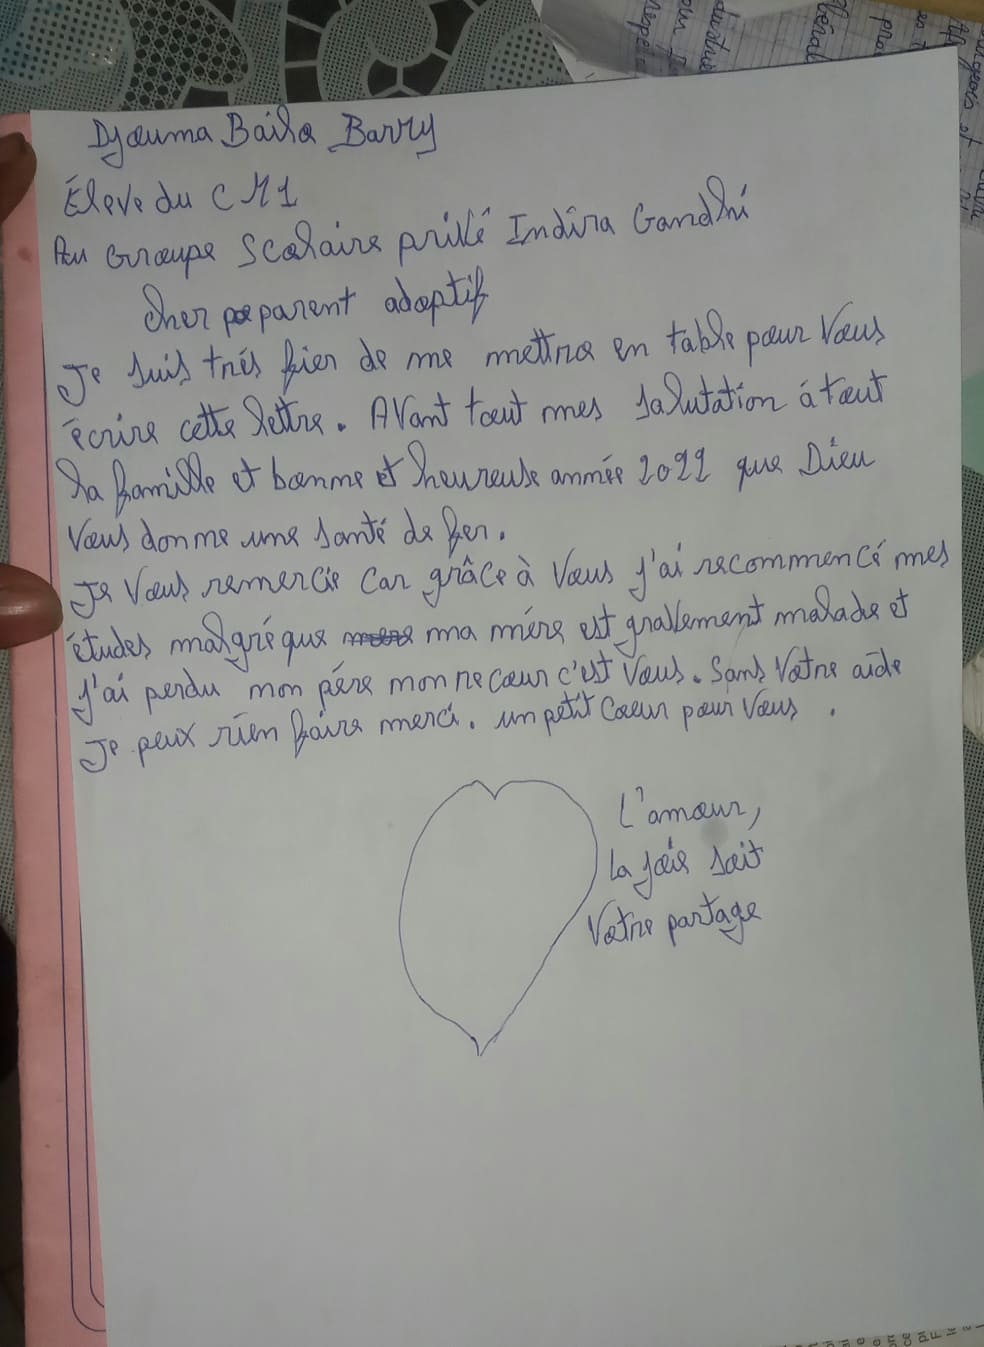 Djouma Baïlo Barry
Éleve du CM1
Au Groupe Scolaire privé Indira Gandhi
Cher pe parent adoptif
Je suis trés fier de me mettre en table pour Vous
écrire cette lettre. Avant tout mes salutation á tout
la famille et bonne et heureuse année 2022 que Dieu
Vous donne une santé de fer.
Je Vous remercie car grâce à Vous j'ai recommencé mes
études malgré que ma mére est gravement malade et
j'ai perdu mon pére mon recour c'est Vous. Sans Votre aide
Je peux rien faire merci. un petit Coeur pour Vous.
L'amour,
la joie soit
Votre partage